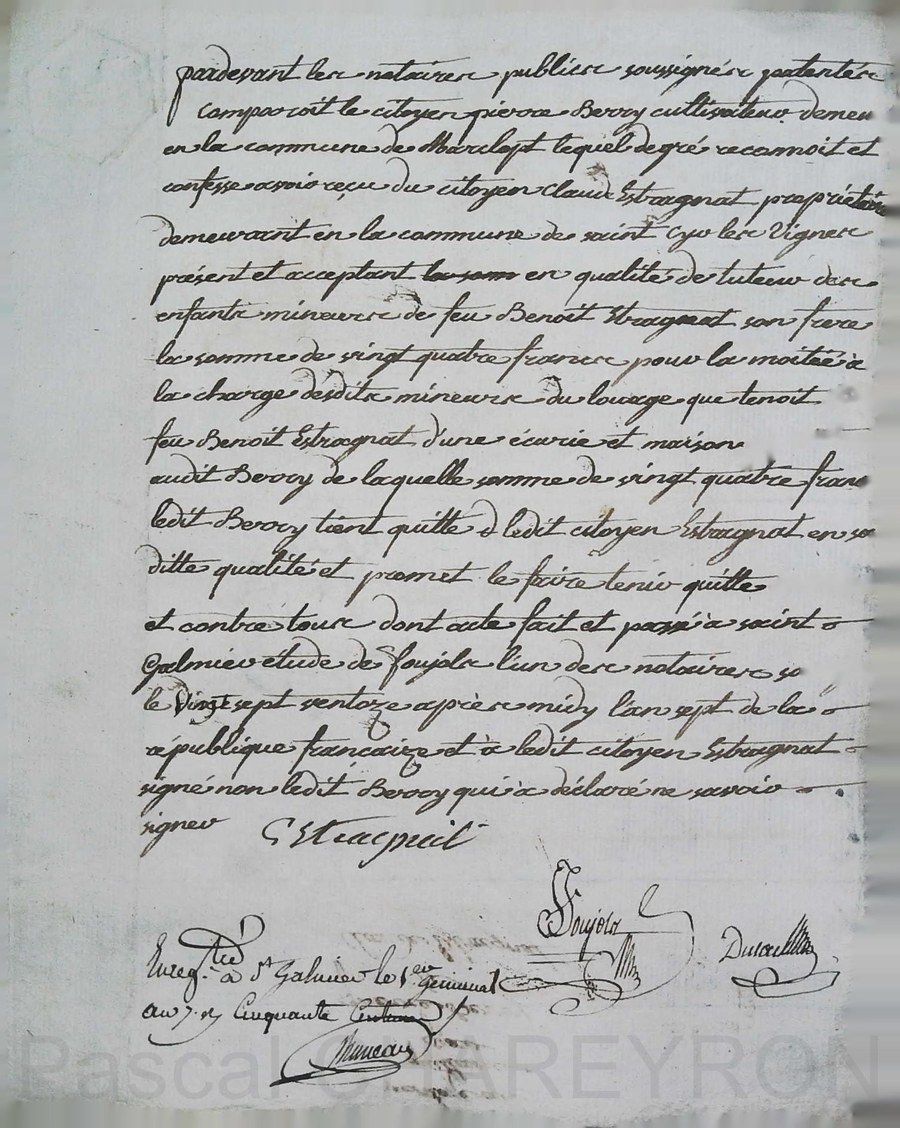 pardevant les notaires publics soussignés patentés
comparoit le citoyen pierre Berry cultivateur demeu
en la commune de Marclopt lequel de gré reconnoit et
confesse avoir reçu du citoyen Claude Estragnat propriétaire
demeurant en la commune de saint Cyr les Vignes
présent et acceptant en qualité de tuteur des
enfants mineurs de feu Benoit Estragnat son frere
la somme de vingt quatre francs pour la moitée à
la charge desdits mineurs du louage que tenoit
feu Benoit Estragnat d'une écurie et maison
audit Berry de laquelle somme de vingt quatre franc
ledit Berry tient quitte ledit citoyen Estragnat en sa
ditte qualité et promet le faire tenir quitte
et contre tous dont acte fait et passé à saint
Galmier étude de Foujols l'un des notaires so
le vingt sept ventoze après midy l'an sept de la
république francaize et à ledit citoyen Estragnat
signé non ledit Berry qui à déclaré ne savoir
signer Estragnat
Foujols
Enreg.tré à St Galmier le 1er Germinal
an 7. r. Cinquante Centimes
Pascal CHAREYRON